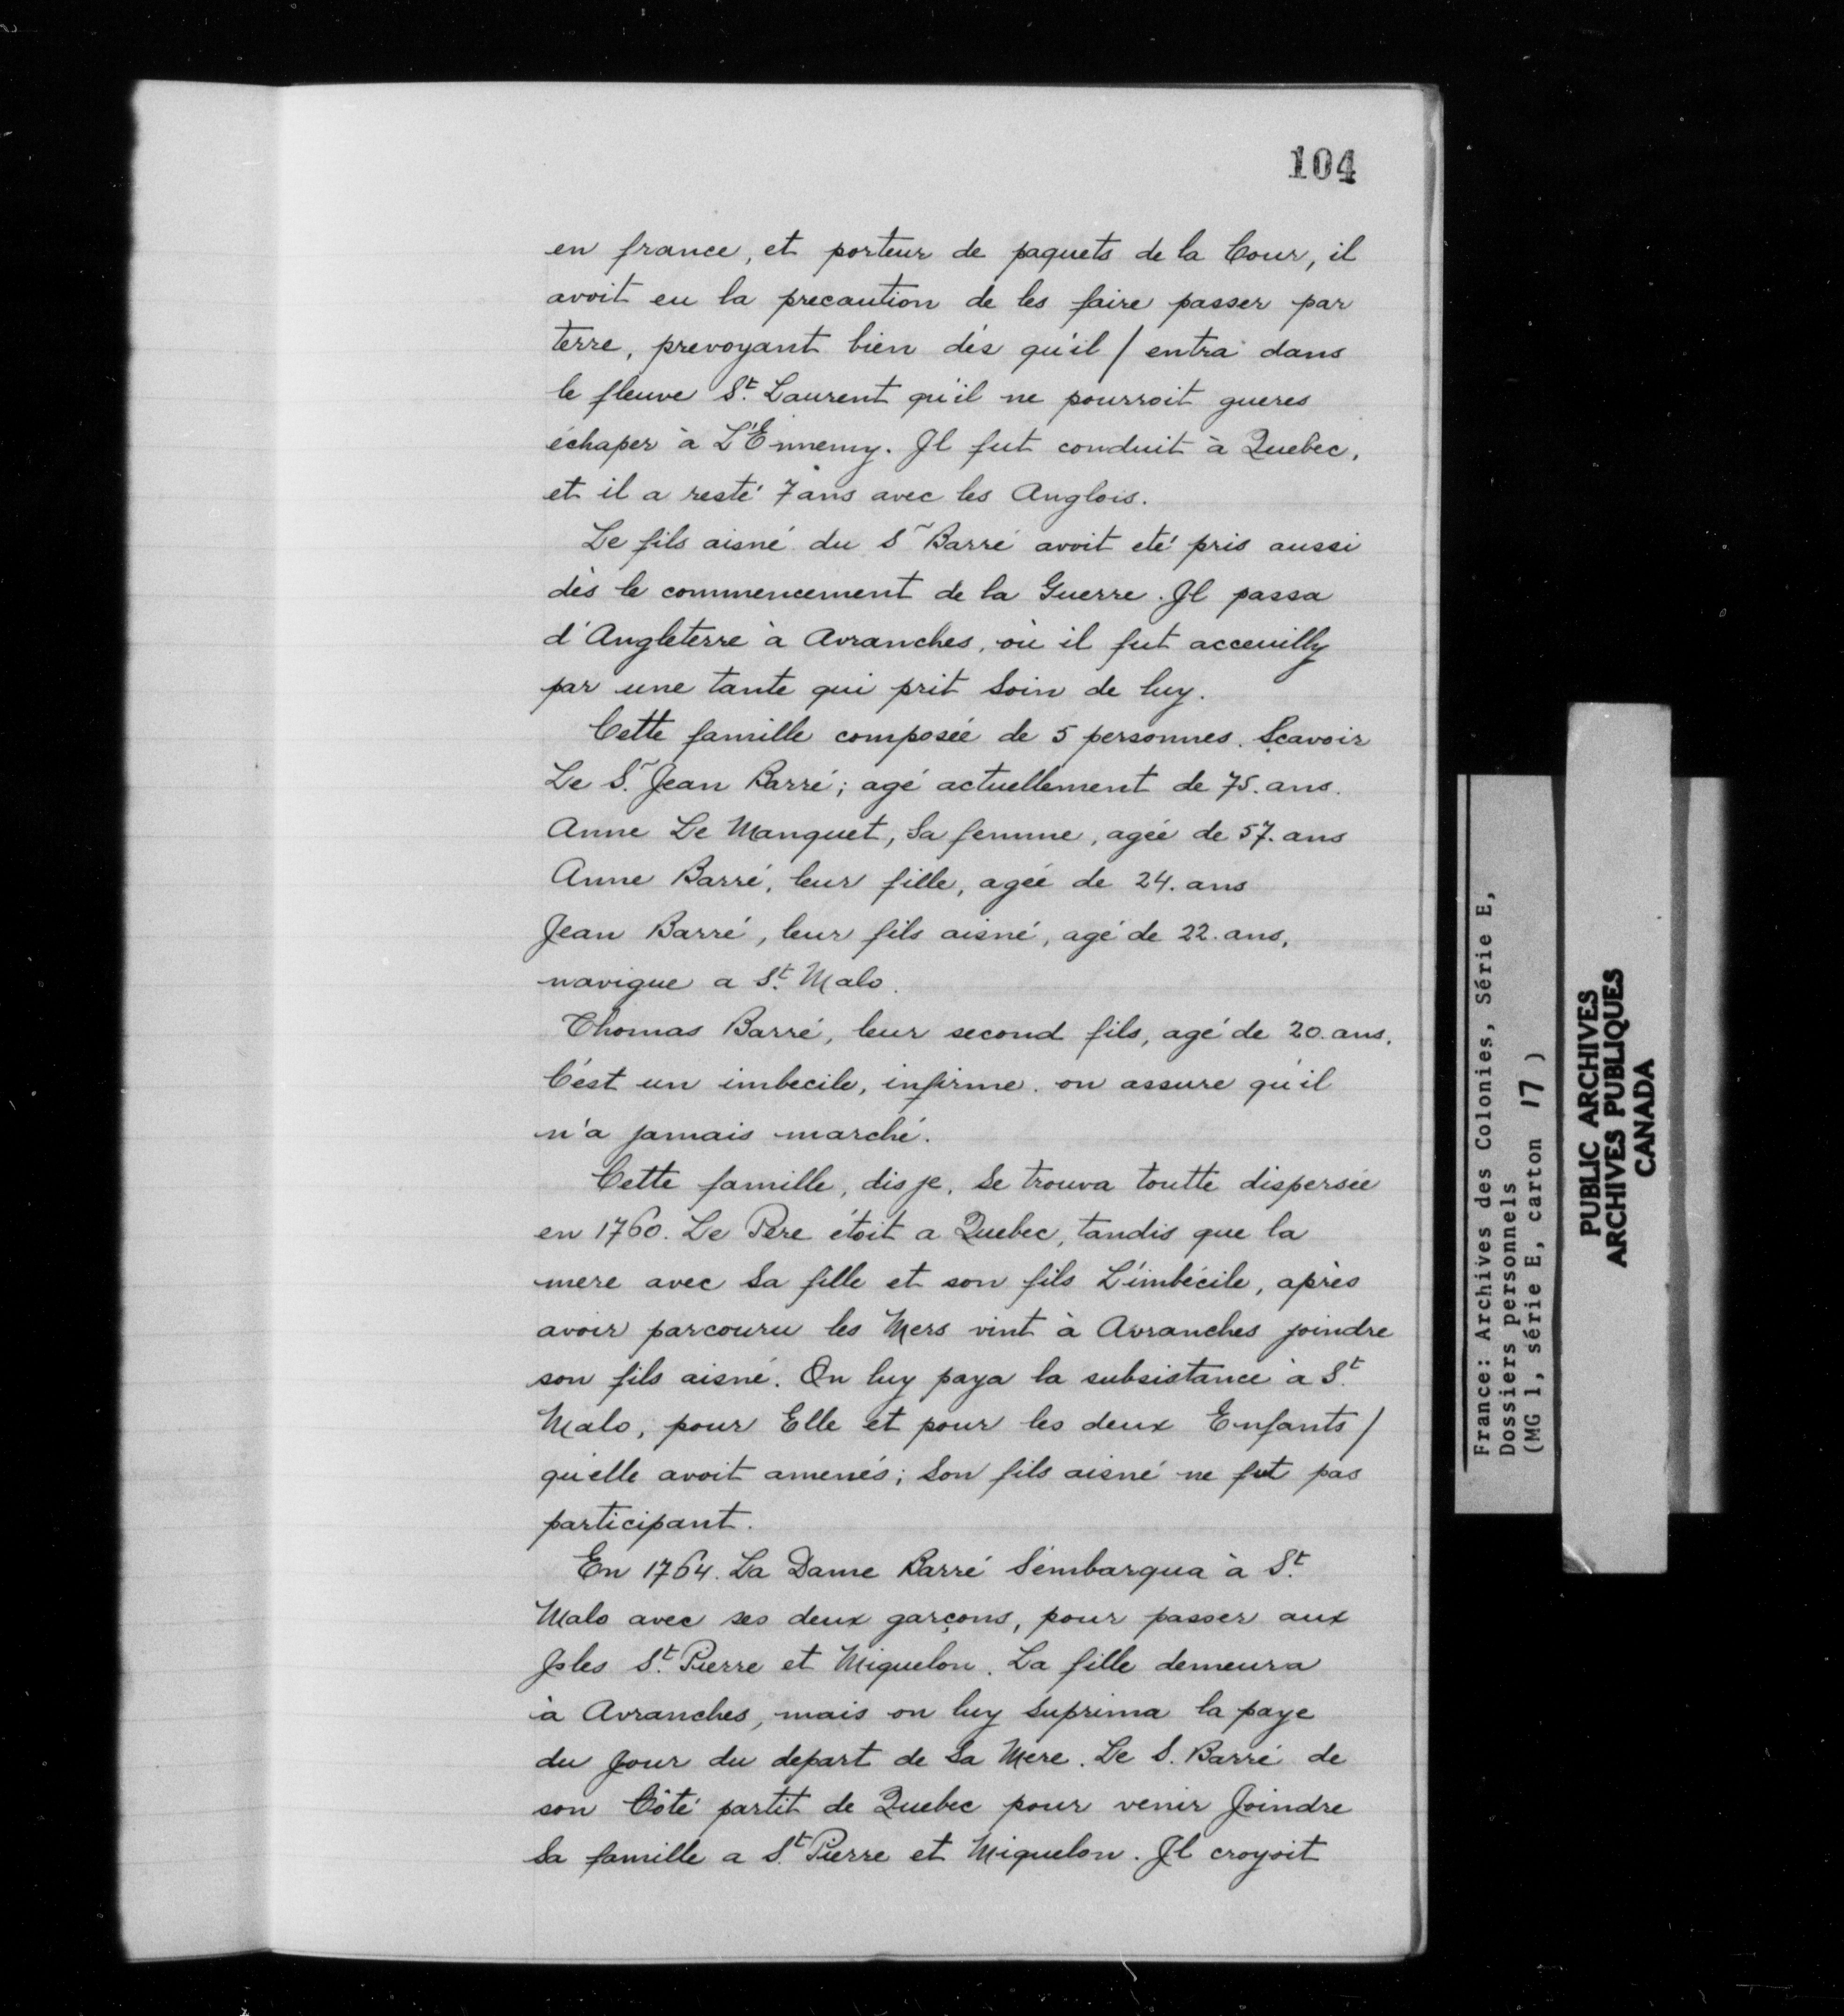 104
en france, et porteur de paquets de la Cour, il
avoit eu la precaution de les faire passer par
terre, prevoyant bien dès qu'il / entra dans
le fleuve St. Laurent qu'il ne pourroit gueres
échaper à L'Ennemy. Il fut conduit à Quebec,
et il a resté 7 ans avec les Anglois.
Le fils aisné du Sr Barré avoit eté pris aussi
dès le commencement de la Guerre. Il passa
d'Angleterre à Avranches, où il fut acceuilly
par une tante qui prit Soin de luy.
Cette famille composée de 5 personnes. Sçavoir
Le Sr. Jean Barré; agé actuellement de 75. ans.
Anne Le Manquet, Sa femme, agée de 57. ans
Anne Barré, leur fille, agée de 24. ans
Jean Barré, leur fils aisné, agé de 22. ans,
navigue a St. Malo.
Thomas Barré, leur second fils, agé de 20. ans,
C'est un imbecile, infirme. on assure qu'il
n'a jamais marché.
Cette famille, dis je, Se trouva toutte dispersée
en 1760. Le Père étoit a Quebec, tandis que la
mere avec Sa fille et son fils L'imbécile, après
avoir parcouru les Mers vint à Avranches joindre
son fils aisné. On luy paya la subsistance à St.
Malo, pour Elle et pour les deux Enfants /
qu'elle avoit amenés; Son fils aisné ne fut pas
participant.
En 1764. La Dame Barré S'embarqua à St.
Malo avec ses deux garçons, pour passer aux
Isles St. Pierre et Miquelon. La fille demeura
à Avranches, mais on luy Suprima la paye
du Jour du depart de Sa Mere. Le S. Barré de
son Côté partit de Quebec pour venir Joindre
Sa famille a St. Pierre et Miquelon. Il croyoit
France: Archives des Colonies, Série E,
Dossiers personnels
(MG 1, série E, carton 17 )
PUBLIC ARCHIVES
ARCHIVES PUBLIQUES
CANADA